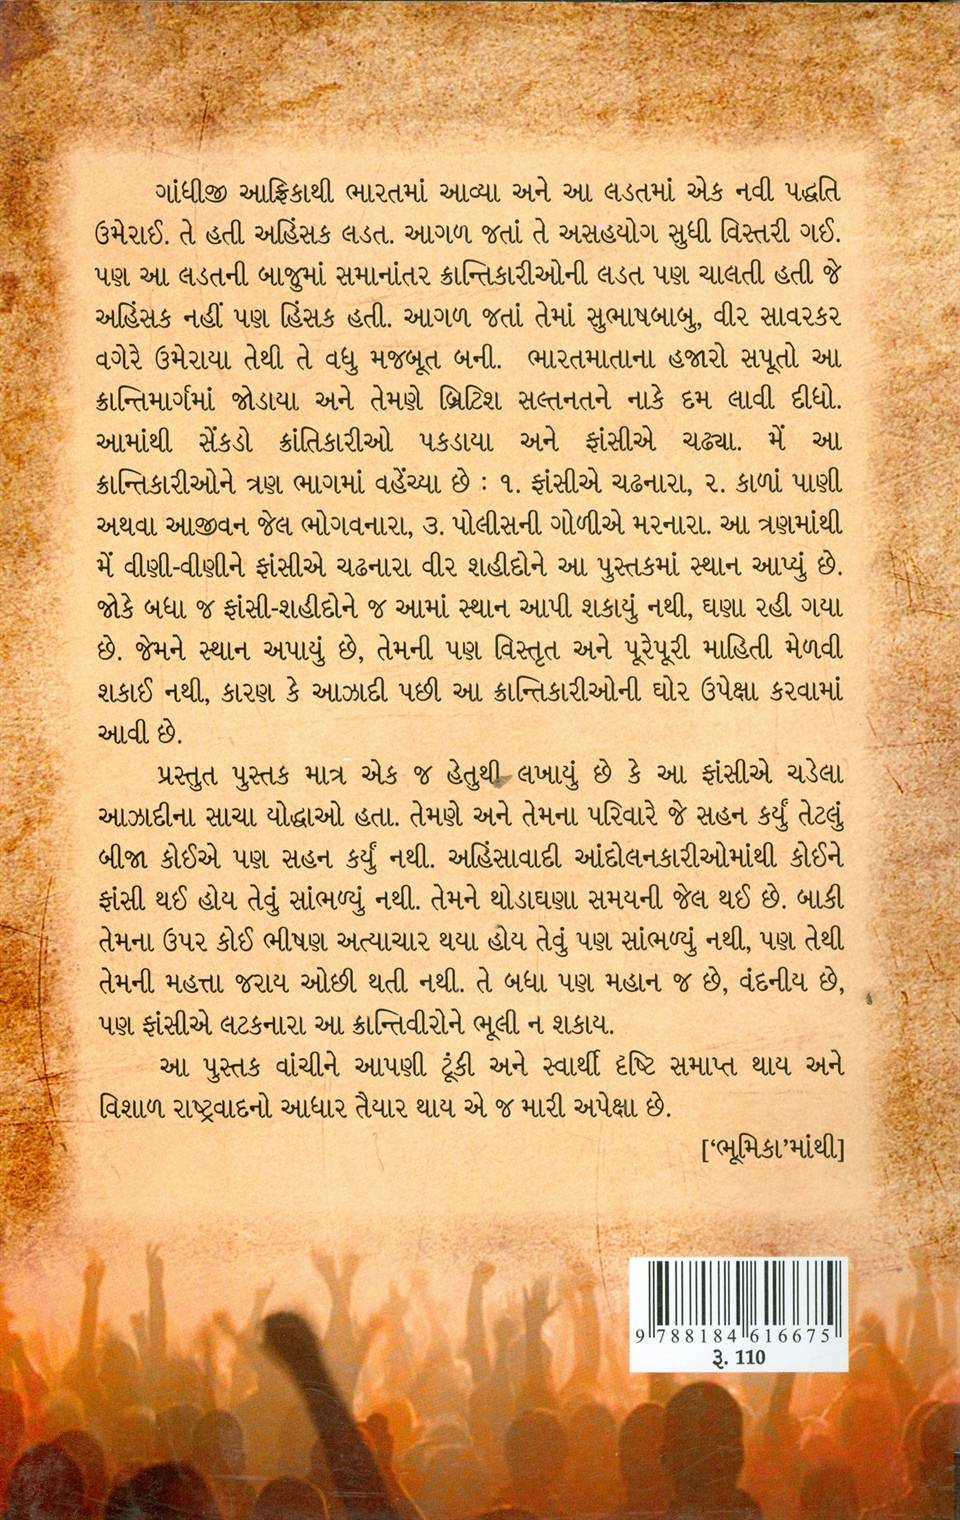 ગાંધીજી આફ્રિકાથી ભારતમાં આવ્યા અને આ લડતમાં એક નવી પદ્ધતિ
ઉમેરાઈ. તે હતી અહિંસક લડત. આગળ જતાં તે અસહયોગ સુધી વિસ્તરી ગઈ.
પણ આ લડતની બાજુમાં સમાનાંતર ક્રાન્તિકારીઓની લડત પણ ચાલતી હતી જે
અહિંસક નહીં પણ હિંસક હતી. આગળ જતાં તેમાં સુભાષબાબુ, વીર સાવરકર
વગેરે ઉમેરાયા તેથી તે વધુ મજબૂત બની. ભારતમાતાના હજારો સપૂતો આ
ક્રાન્તિમાર્ગમાં જોડાયા અને તેમણે બ્રિટિશ સલ્તનતને નાકે દમ લાવી દીધો.
આમાંથી સેંકડો ક્રાંતિકારીઓ પકડાયા અને ફાંસીએ ચઢ્યા. મેં આ
ક્રાન્તિકારીઓને ત્રણ ભાગમાં વહેંચ્યા છે : ૧. ફાંસીએ ચઢનારા, ૨. કાળાં પાણી
અથવા આજીવન જેલ ભોગવનારા, ૩. પોલીસની ગોળીએ મરનારા. આ ત્રણમાંથી
મેં વીણી-વીણીને ફાંસીએ ચઢનારા વીર શહીદોને આ પુસ્તકમાં સ્થાન આપ્યું છે.
જોકે બધા જ ફાંસી-શહીદોને જ આમાં સ્થાન આપી શકાયું નથી, ઘણા રહી ગયા
છે. જેમને સ્થાન અપાયું છે, તેમની પણ વિસ્તૃત અને પૂરેપૂરી માહિતી મેળવી
શકાઈ નથી, કારણ કે આઝાદી પછી આ ક્રાન્તિકારીઓની ઘોર ઉપેક્ષા કરવામાં
આવી છે.
પ્રસ્તુત પુસ્તક માત્ર એક જ હેતુથી લખાયું છે કે આ ફાંસીએ ચડેલા
આઝાદીના સાચા યોદ્ધાઓ હતા. તેમણે અને તેમના પરિવારે જે સહન કર્યું તેટલું
બીજા કોઈએ પણ સહન કર્યું નથી. અહિંસાવાદી આંદોલનકારીઓમાંથી કોઈને
ફાંસી થઈ હોય તેવું સાંભળ્યું નથી. તેમને થોડાઘણા સમયની જેલ થઈ છે. બાકી
તેમના ઉપર કોઈ ભીષણ અત્યાચાર થયા હોય તેવું પણ સાંભળ્યું નથી, પણ તેથી
તેમની મહત્તા જરાય ઓછી થતી નથી. તે બધા પણ મહાન જ છે, વંદનીય છે,
પણ ફાંસીએ લટકનારા આ ક્રાન્તિવીરોને ભૂલી ન શકાય.
આ પુસ્તક વાંચીને આપણી ટૂંકી અને સ્વાર્થી દૃષ્ટિ સમાપ્ત થાય અને
વિશાળ રાષ્ટ્રવાદનો આધાર તૈયાર થાય એ જ મારી અપેક્ષા છે.
['ભૂમિકા'માંથી]
9 788184 616675
રૂ. 110